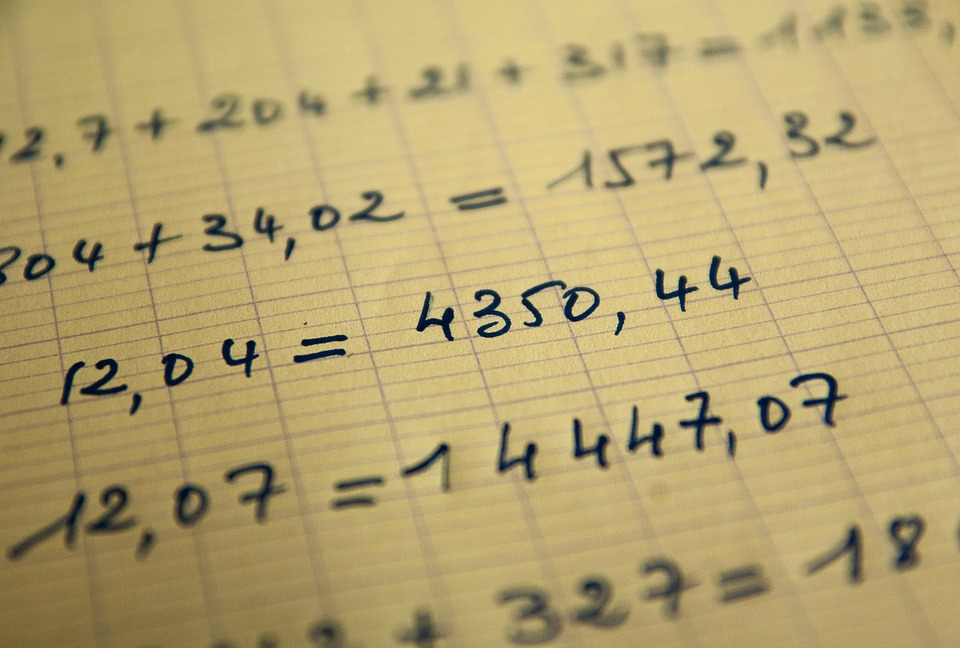 12,7 + 204 + 21 + 317 = 1.133,
304 + 34,02 = 1572,32
12,04 = 4350,44
12,07 = 14447,07
+ 327 = 18